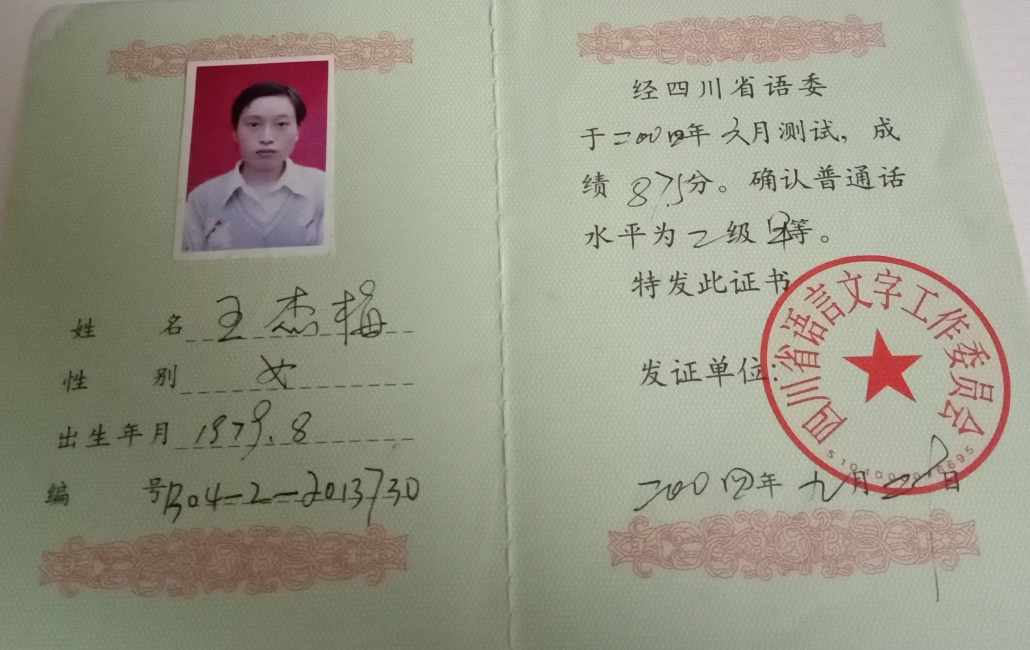 姓 名 王杰梅
性 别 女
出生年月 1979.8
编 号 B04-2-2013730
经四川省语委
于二00四年六月测试，成
绩 87.5分。确认普通话
水平为二级甲等。
特发此证书
发证单位：
四川省语言文字工作委员会
二00四年九月 日